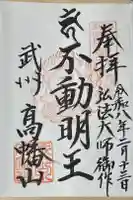 奉拝
令和八年二月十三日
弘法大師御作
不動明王
武州
高幡山